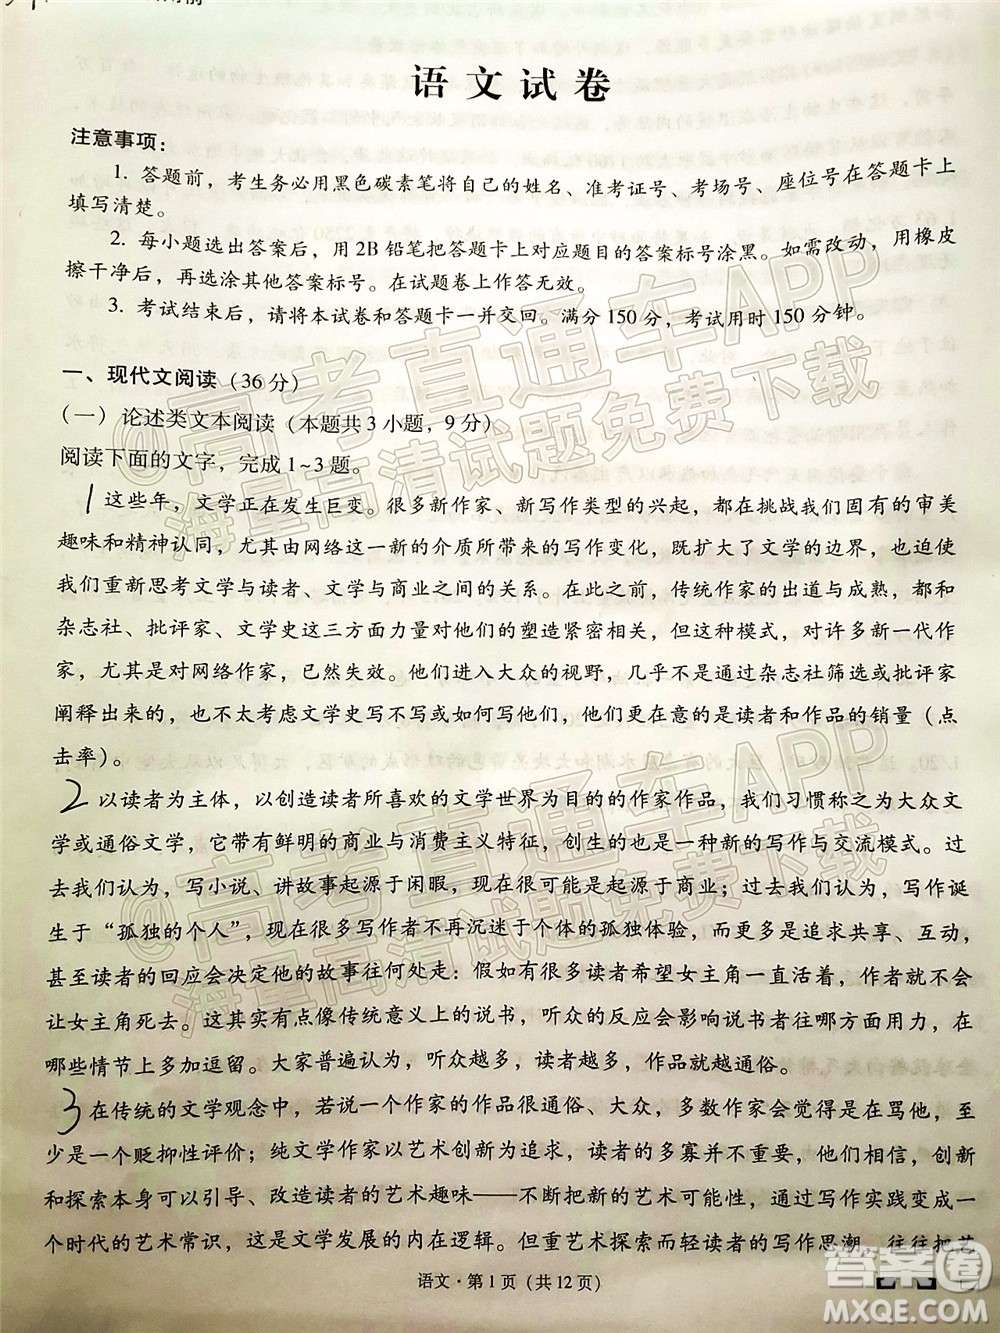 语文试卷
注意事项：
1. 答题前，考生务必用黑色碳素笔将自己的姓名、准考证号、考场号、座位号在答题卡上
填写清楚。
2. 每小题选出答案后，用 2B 铅笔把答题卡上对应题目的答案标号涂黑。如需改动，用橡皮
擦干净后，再选涂其他答案标号。在试题卷上作答无效。
3. 考试结束后，请将本试卷和答题卡一并交回。满分 150 分，考试用时 150 分钟。
一、现代文阅读（36 分）
（一）论述类文本阅读（本题共 3 小题，9 分）
阅读下面的文字，完成 1~3 题。
1 这些年，文学正在发生巨变。很多新作家、新写作类型的兴起，都在挑战我们固有的审美
趣味和精神认同，尤其由网络这一新的介质所带来的写作变化，既扩大了文学的边界，也迫使
我们重新思考文学与读者、文学与商业之间的关系。在此之前，传统作家的出道与成熟，都和
杂志社、批评家、文学史这三方面力量对他们的塑造紧密相关，但这种模式，对许多新一代作
家，尤其是对网络作家，已然失效。他们进入大众的视野，几乎不是杂志社筛选或批评家
阐释出来的，也不太考虑文学史写不写或如何写他们，他们更在意的是读者和作品的销量（点
击率）。
2 以读者为主体，以创造读者所喜欢的文学世界为目的的作家作品，我们习惯称之为大众文
学或通俗文学，它带有鲜明的商业与消费主义特征，创生的也是一种新的写作与交流模式。过
去我们认为，写小说、讲故事起源于闲暇，现在很可能是起源于商业；过去我们认为，写作诞
生于“孤独的个人”，现在很多写作者不再沉迷于个体的孤独体验，而更多是追求共享、互动，
甚至读者的回应会决定他的故事往何处走：假如有很多读者希望女主角一直活着，作者就不会
让女主角死去。这其实有点像传统意义上的说书，听众的反应会影响说书者往哪方面用力，在
哪些情节上多加逗留。大家普遍认为，听众越多，读者越多，作品就越通俗。
3 在传统的文学观念中，若说一个作家的作品很通俗、大众，多数作家会觉得是在骂他，至
少是一个贬抑性评价；纯文学作家以艺术创新为追求，读者的多寡并不重要，他们相信，创新
和探索本身可以引导、改造读者的艺术趣味——不断把新的艺术可能性，通过写作实践变成一
个时代的艺术常识，这是文学发展的内在逻辑。但重艺术探索而轻读者的写作思潮，往往会把艺
语文·第 1 页（共 12 页）
@高考直通车APP
海量高清试题免费下载
@高考直通车APP
海量高清试题免费下载
答案圈
MXQE.COM